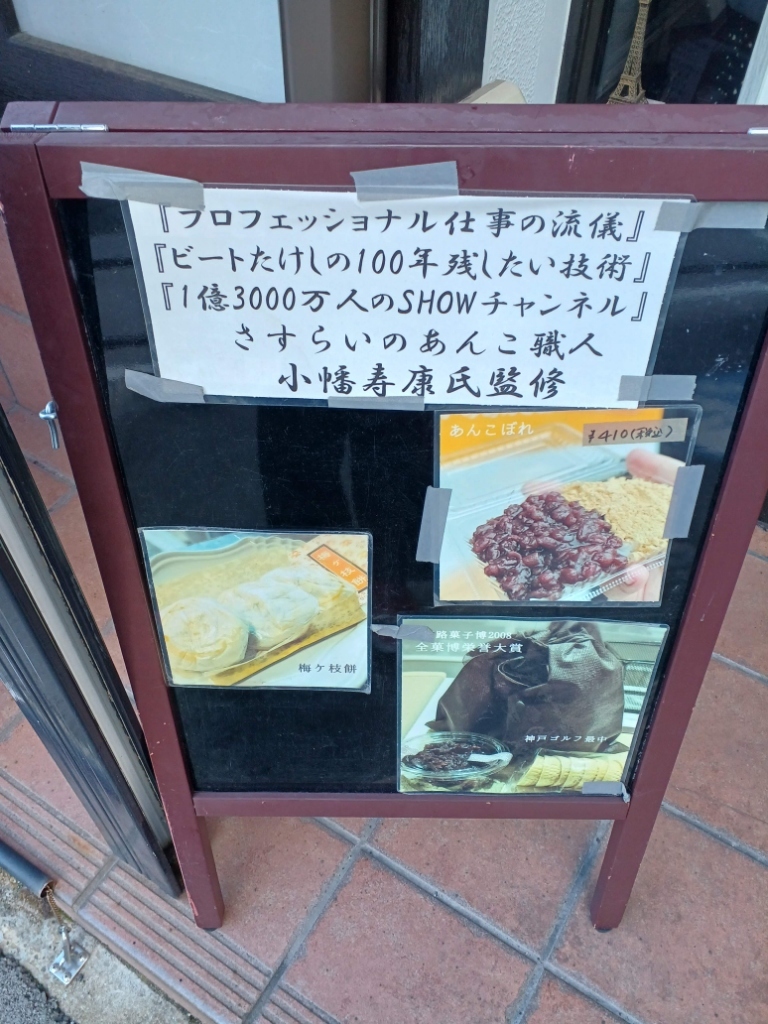 『プロフェッショナル仕事の流儀』
『ビートたけしの100年残したい技術』
『1億3000万人のSHOWチャンネル』
さすらいのあんこ職人
小幡寿康氏監修
あんこぼれ
¥410(税込)
梅ケ枝餅
菓子博2008
全菓博栄誉大賞
神戸ゴルフ最中